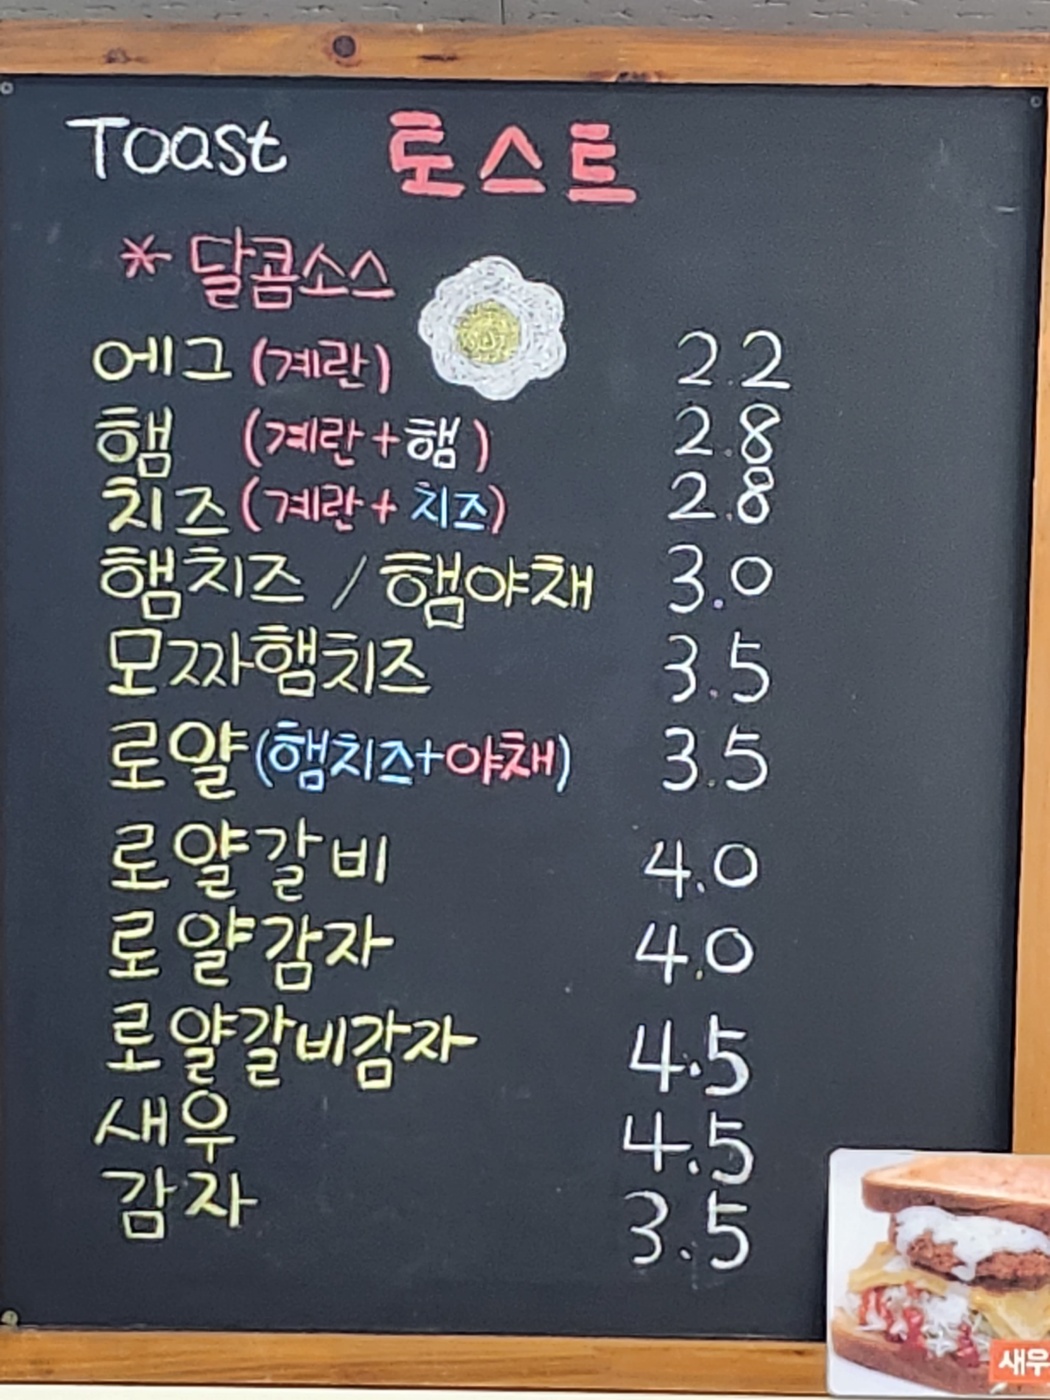 Toast 토스트
* 달콤소스
에그 (계란) 2.2
햄 (계란+햄) 2.8
치즈 (계란+치즈) 2.8
햄치즈 / 햄야채 3.0
모짜햄치즈 3.5
로얄 (햄치즈+야채) 3.5
로얄갈비 4.0
로얄감자 4.0
로얄갈비감자 4.5
새우 4.5
감자 3.5
새우